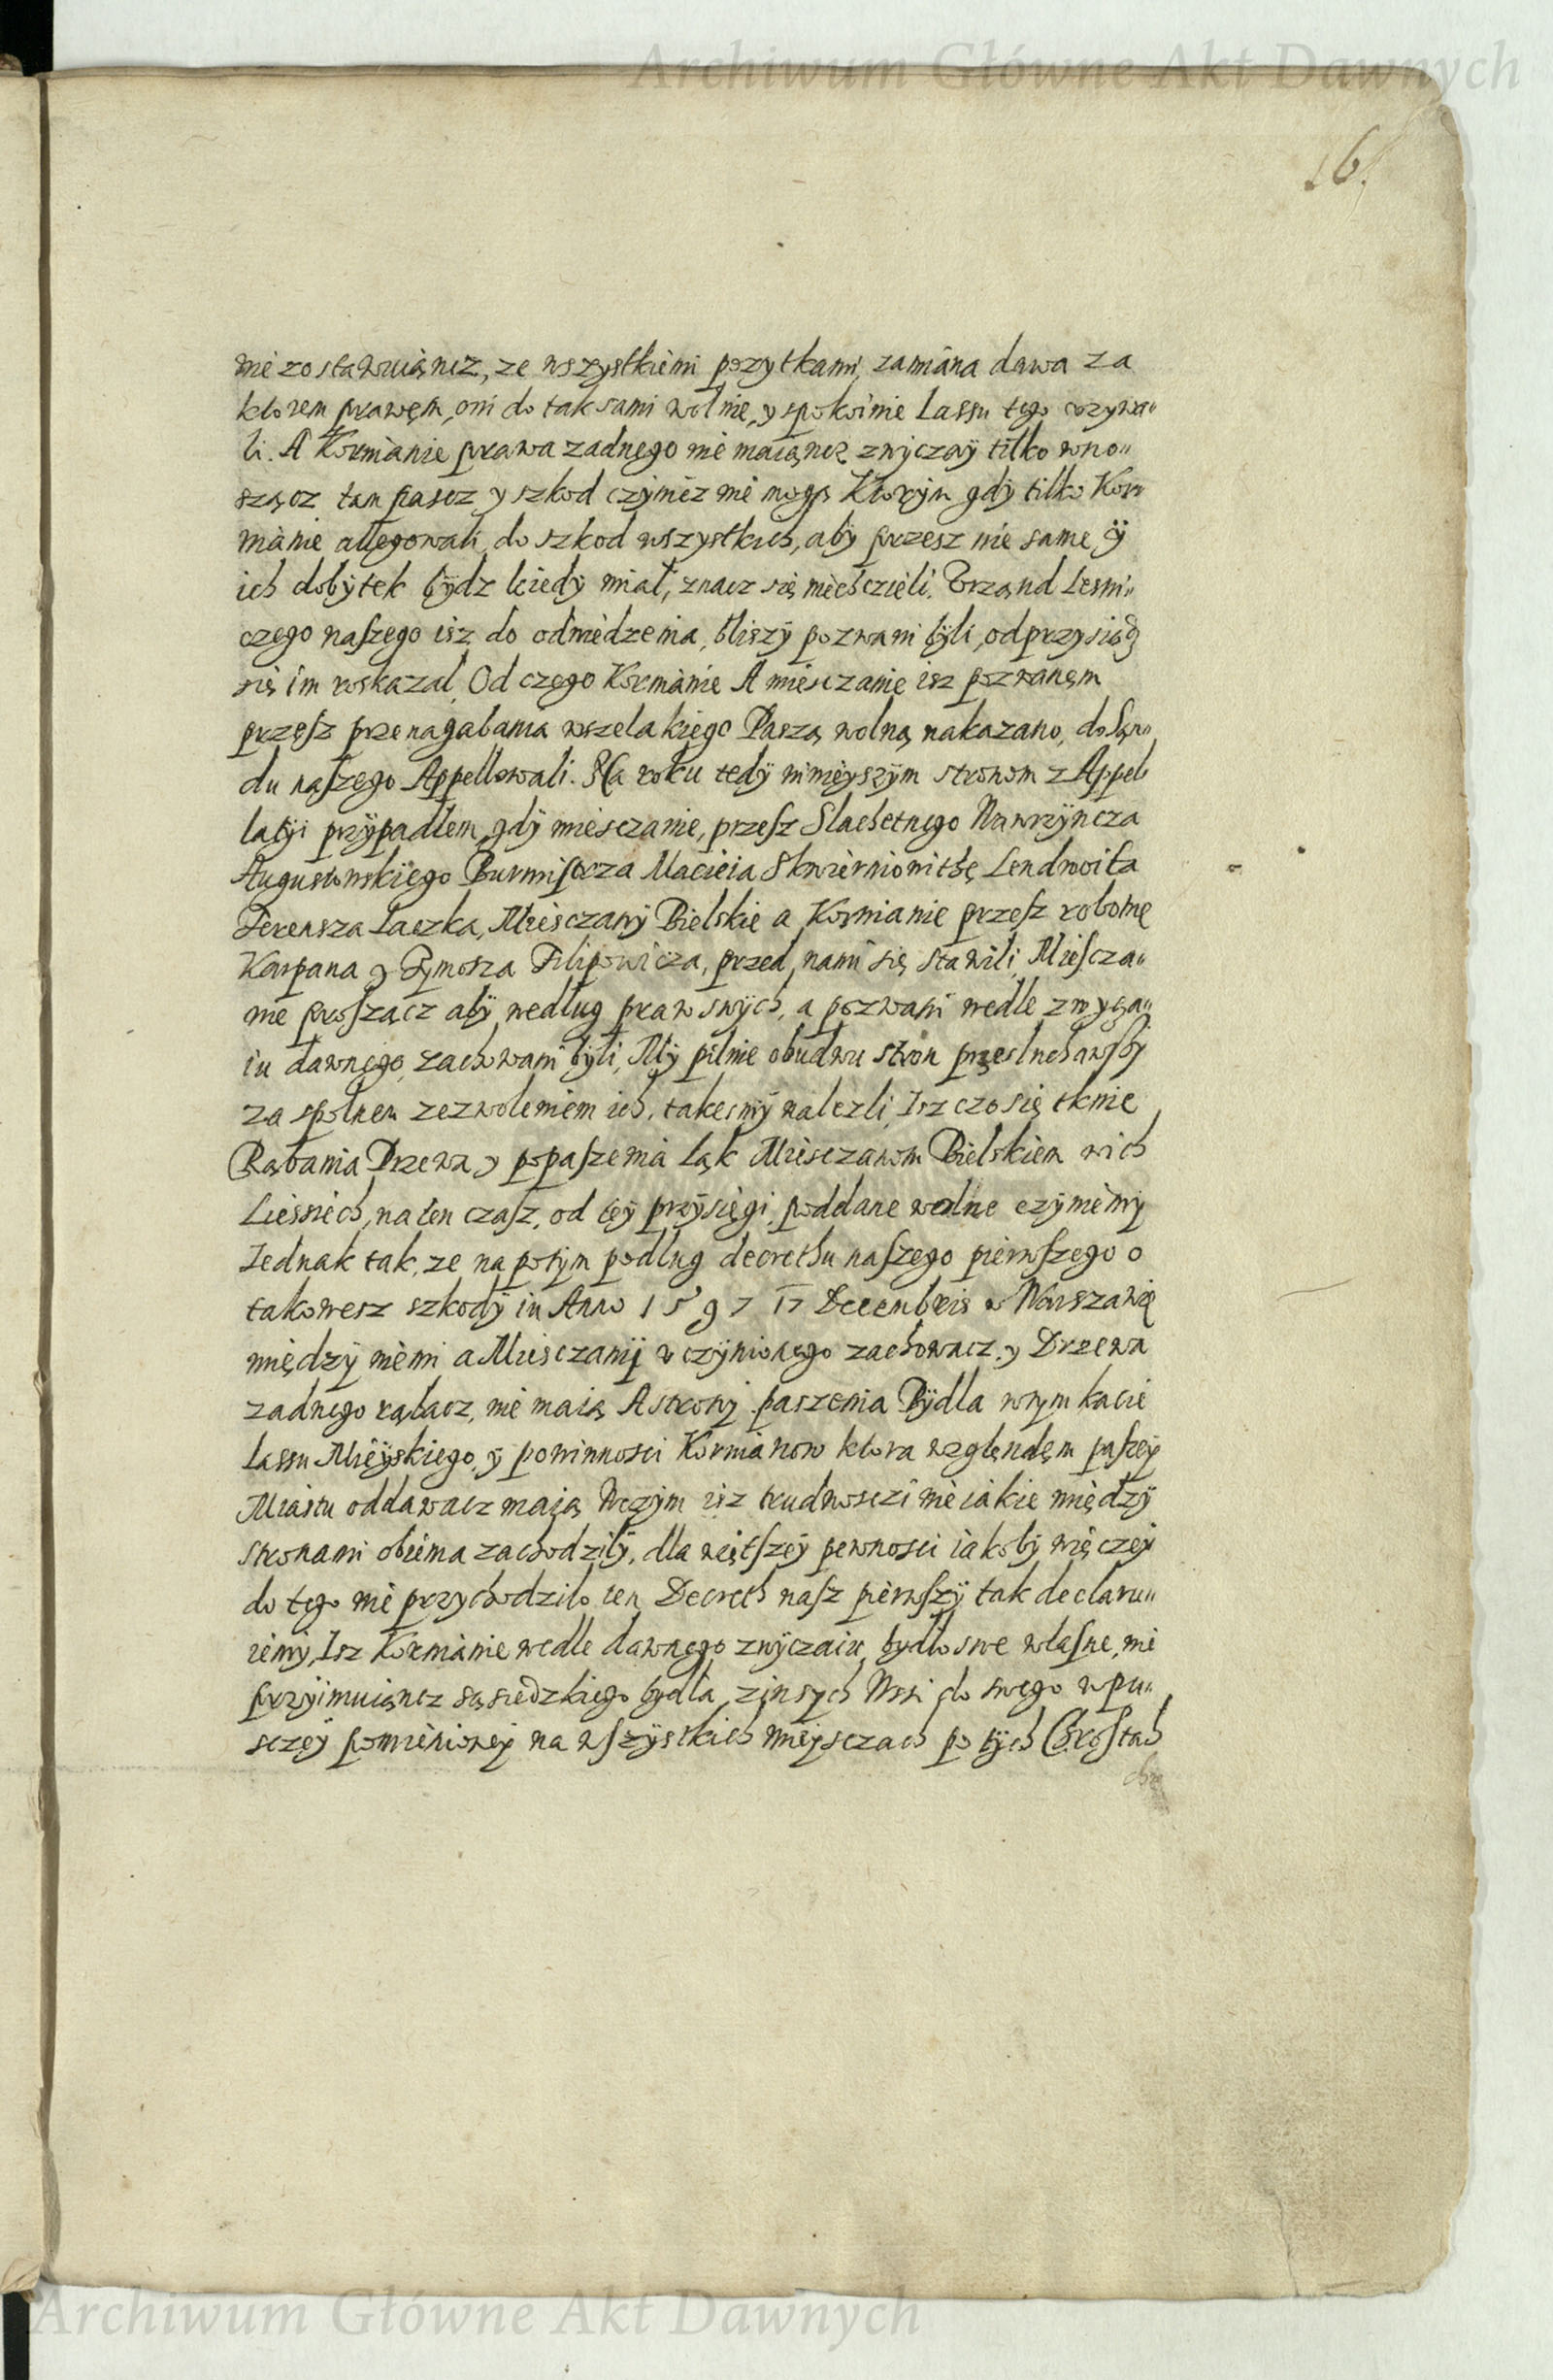 Archiwum Główne Akt Dawnych
16.
nie zostawuiąncz, ze wszystkiemi pozytkami, zamiana dawa za
ktorem prawem, oni do tak sami wolnie, y spokoinie Lassu tego vzywa„
li. A Kormianie prawa zadnego nie maiąncz zwyczaÿ tilko wno„
sząncz tam pascz y szkod czÿnicz nie mogą Ktorÿm gdÿ tilko Kor„
mianie allegowali, do szkod wszystkich, aby przesz nie same ÿ
ich dobÿtek bÿdz kiedÿ miał, znacz się niechczieli. Vrzand Lesni„
czego naszego isz do odwiedzenia, bliszÿ pozwani bÿli, odprzysiądz
się im roskazal, Od czego Kormianie A miesczanie isz pozwanem
przesz przenagabania wszelakiego Pasza wolną nakazano, do Sąn„
du naszego Appellowali. Na roku tedÿ ninieyszÿm stronom z Appel„
latÿi przÿpadłem, gdÿ miesczanie, przesz Slachetnego Wawrzÿncza
Augustowskiego Burmistrza Macieia Lendwoita
Laczka, Miesczany Bielskie a Kormianie przesz robotnę
Karpana y Tymosza Filipowicza, przed nami się stawili, Miescza„
nie proszącz abÿ według praw swÿch, a pozwani wedle zwycza„
iu dawnego, zachowani bÿli, Mÿ pilnie obudwu stron przesluchawszÿ
za spolnem zezwoleniem ich, takesmÿ nalezli, Isz czo się tknie
Rąbania Drzewa y popaszenia Ląk Miesczanom Bielskiem w ich
Liessiech, na ten czasz, od teÿ przÿsięgi, poddane wolne czÿniemÿ
Iednak tak, ze na potÿm podlug decrethu naszego pierwszego o
takowesz szkodÿ in Anno 1597 17 Decembris w Warszawie
międzÿ niemi a Miesczanÿ vczÿnionego zachowacz y Drzewa
zadnego rąbacz, nie maią A stronÿ paszenia Bÿdla wtym kacie
Lassu Mieÿskiego, y powinnosci Kormianow ktora względem paszeÿ
Miastu oddawacz maią Wczÿm isz trudnosczi nieiakie międzÿ
stronami obiema zachodziłÿ, dla więtszeÿ pewnosci iakobÿ więczeÿ
do tego nie przychodzilo ten Decreth nasz pierwszÿ tak declaru„
iemÿ, Isz Kormianie wedle dawnego zwÿczaiu, bydło swe własne, nie
przyimuiąncz sąsiedzkiego bydła z inszÿch Wsi do swego w pu„
sczeÿ pomienioneÿ na wszÿstkich mieÿsczach po tÿch Chrostach
Archiwum Główne Akt Dawnych